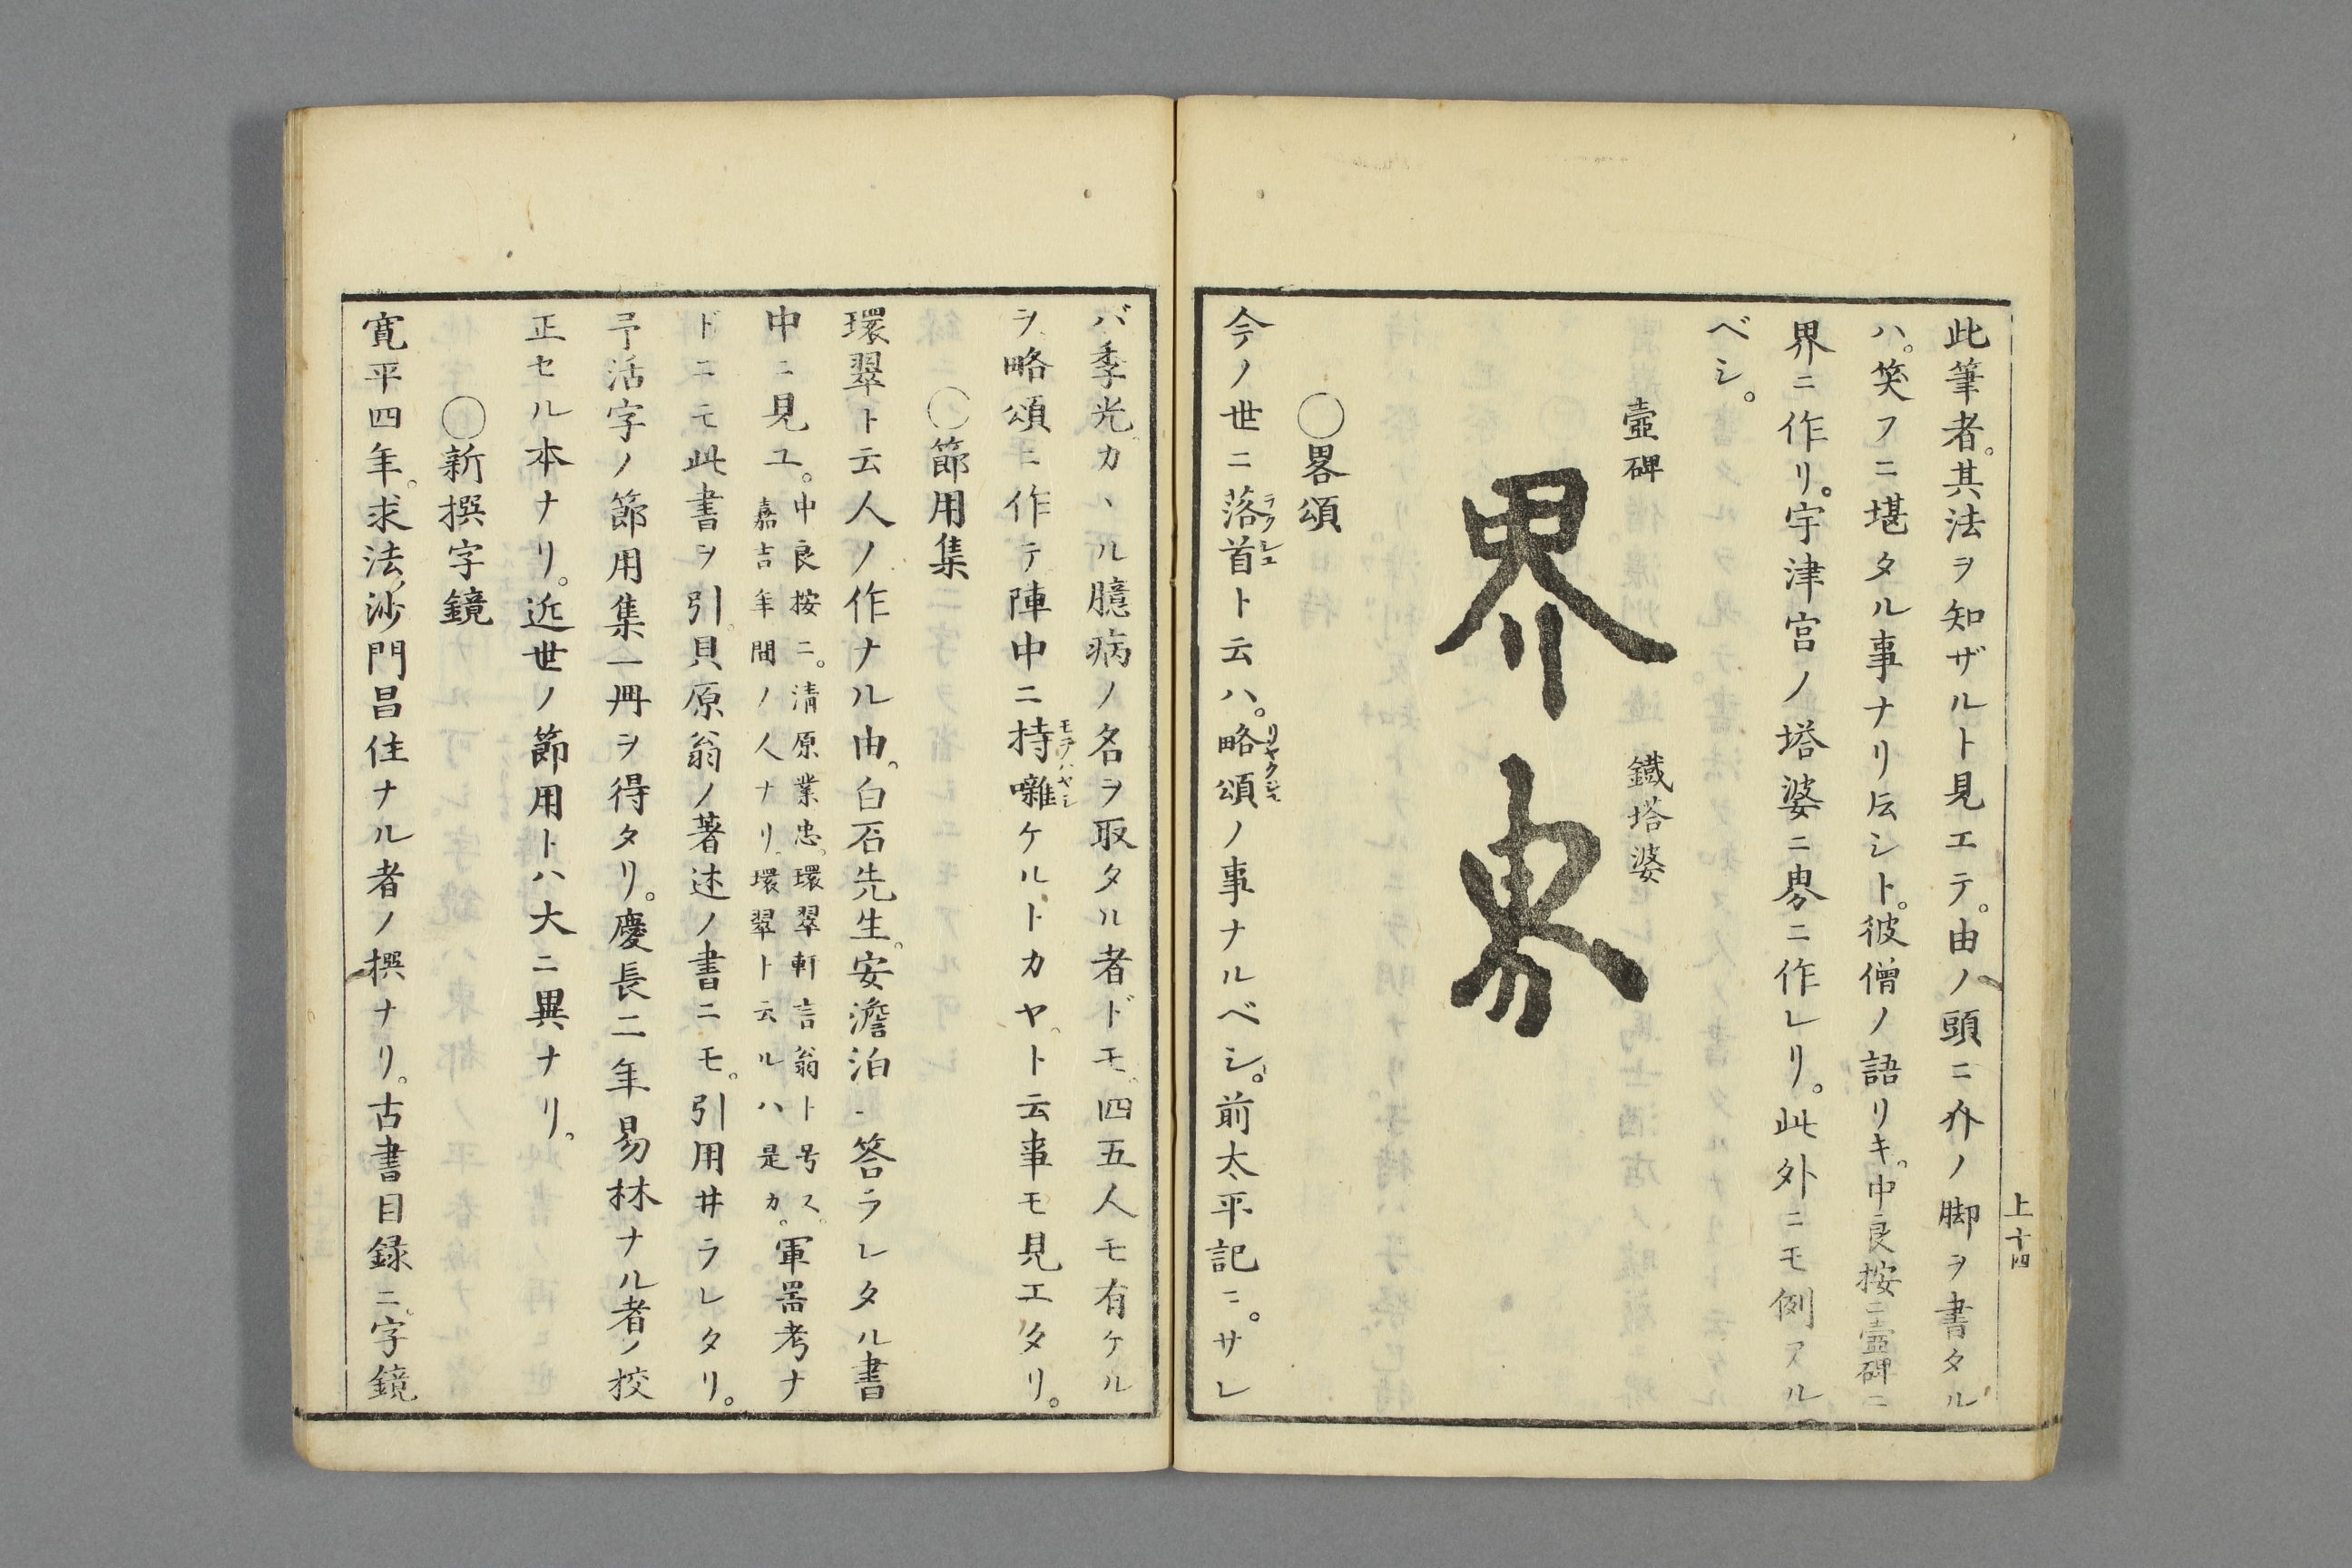 此筆者。其法ヲ知ザルト見エテ。由ノ頭ニ介ノ脚ヲ書タル
ハ。笑フニ堪タル事ナリ㕝シト。彼僧ノ語リキ。中良按ニ壺碑ニ
界ニ作リ。宇津宮ノ塔婆ニ𭻾ニ作レリ。此外ニモ例アル
ベシ。
壺碑　鐵塔婆
界　𭻾
〇畧頌
今ノ世ニ落首ト云ハ。略頌ノ事ナルベシ。前太平記ニ。サレ
ラクシユ
リヤクジユ
上十四
バ季光カヽル臆病ノ名ヲ取タル者ドモ。四五人モ有ケル
ヲ略頌ニ作テ陣中ニ持囃ケルトカヤ。ト云事モ見エタリ。
モテハヤシ
〇節用集
環翠ト云人ノ作ナル由。白石先生。安澹泊ニ答ラレタル書
中ニ見ユ。中良按ニ。清原業忠。環翠軒言翁ト号ス。
嘉吉年間ノ人ナリ。環翠ト云ルハ是カ。軍器考ナ
ドニモ此書ヲ引。貝原翁ノ著述ノ書ニモ。引用井ラレタリ。
予活字ノ節用集一冊ヲ得タリ。慶長二年易林ナル者ノ挍
正セル本ナリ。近世ノ節用トハ大ニ異ナリ。
〇新撰字鏡
寛平四年。求法沙門昌住ナル者ノ撰ナリ。古書目録ニ。字鏡